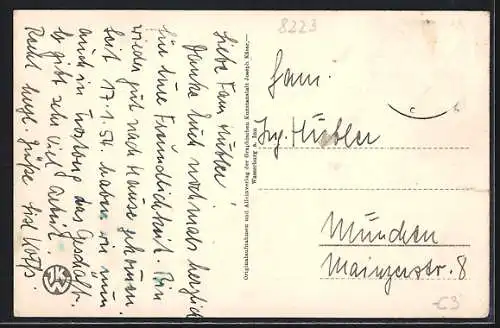 8223
Liebe Fam. Hubler!
Danke Euch nochmals herzlich
für Eure Freundlichkeit. Bin
wieder gut nach Hause gekommen.
Seit 17.1.54. haben wir nun
auch in Trostberg das Geschäft.
Es gibt sehr viel Arbeit.
Recht herzl. Grüße
Originalaufnahmen und Alleinverlag der Graphischen Kunstanstalt Joseph Käser,—
Wasserburg a. Inn
Fam.
Ing. Hubler
München
Mainzerstr. 8
€3